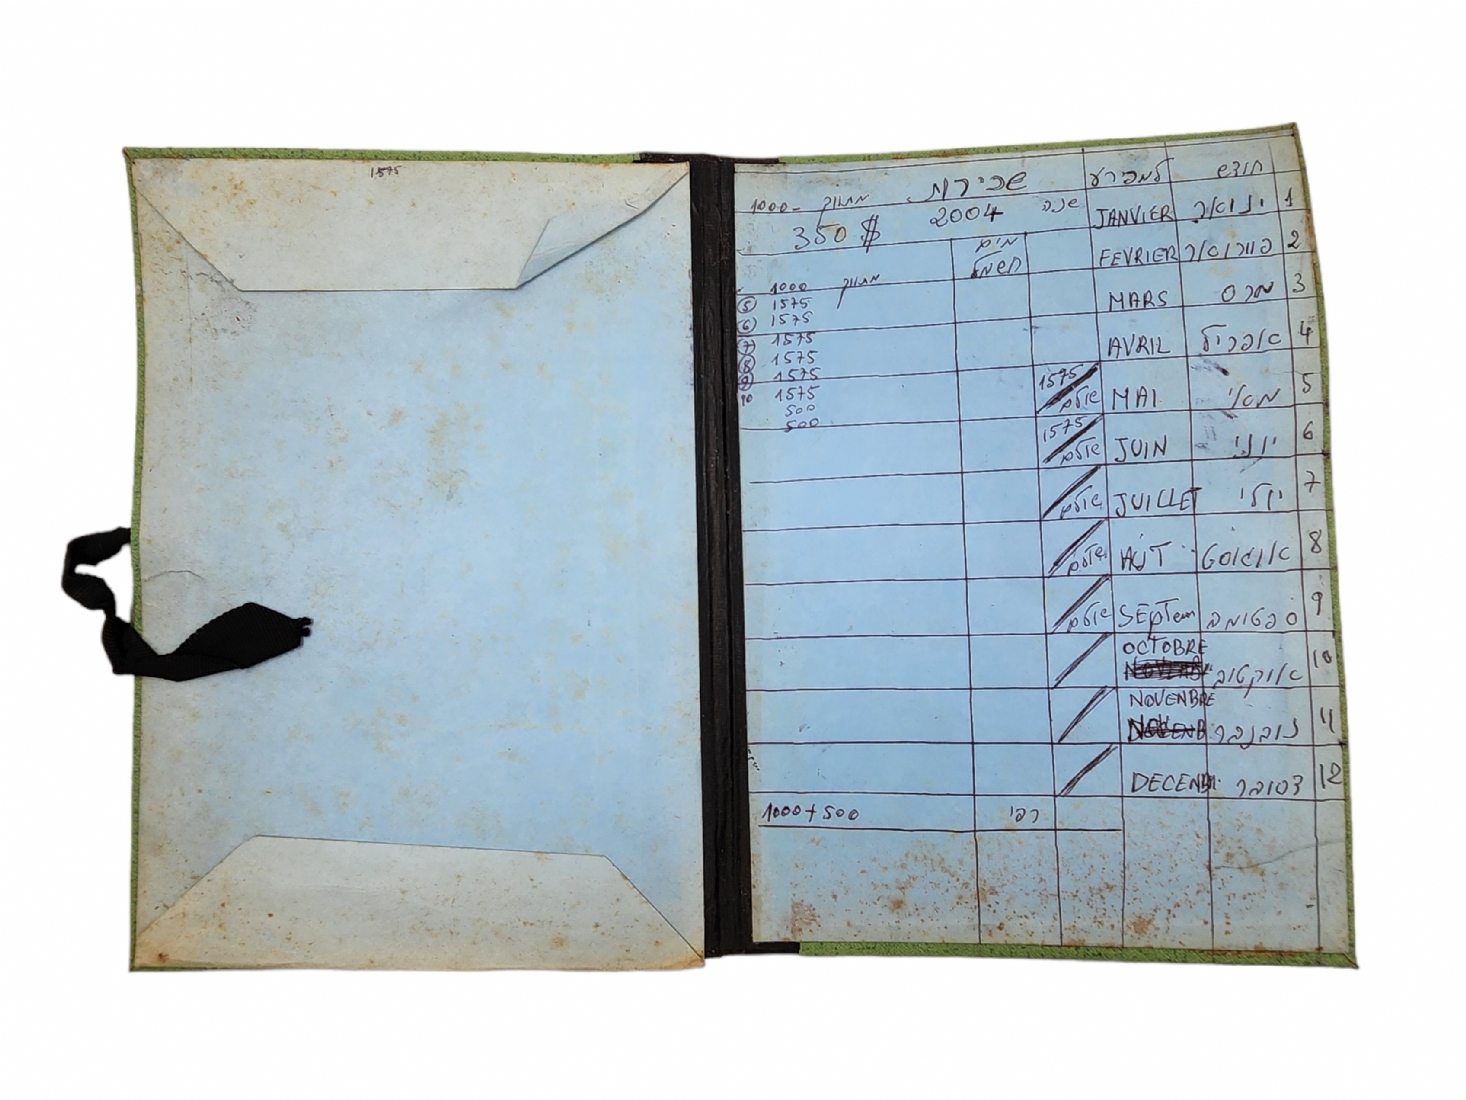 1575
חודש למפרע שכירות
1000- מתווך
1 ינואר JANVIER שנה 2004 350 $
2 פורואר FEVRIER מים חשמל
3 מרס MARS
1000 מתווך
⑤ 1575
⑥ 1575
⑦ 1575
⑧ 1575
⑨ 1575
10 1575
500
500
4 אפריל AVRIL
5 מאי MAI 1575 שולם
6 יוני JUIN 1575 שולם
7 יולי JUILLET שולם
8 אוגוסט שולם
9 ספטומב SEPTem שולם
10 אוקטוב OCTOBRE
11 נובנבר NOVENBRE
12 דסובר DECENB
1000+500